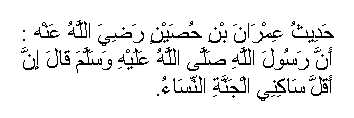 حَدِيثُ عِمْرَانَ بْنِ حُصَيْنٍ رَضِيَ اللَّهُ عَنْه :
أَنَّ رَسُولَ اللَّهِ صَلَّى اللَّهُ عَلَيْهِ وَسَلَّمَ قَالَ إِنَّ
أَقَلَّ سَاكِنِي الْجَنَّةِ النِّسَاءُ.